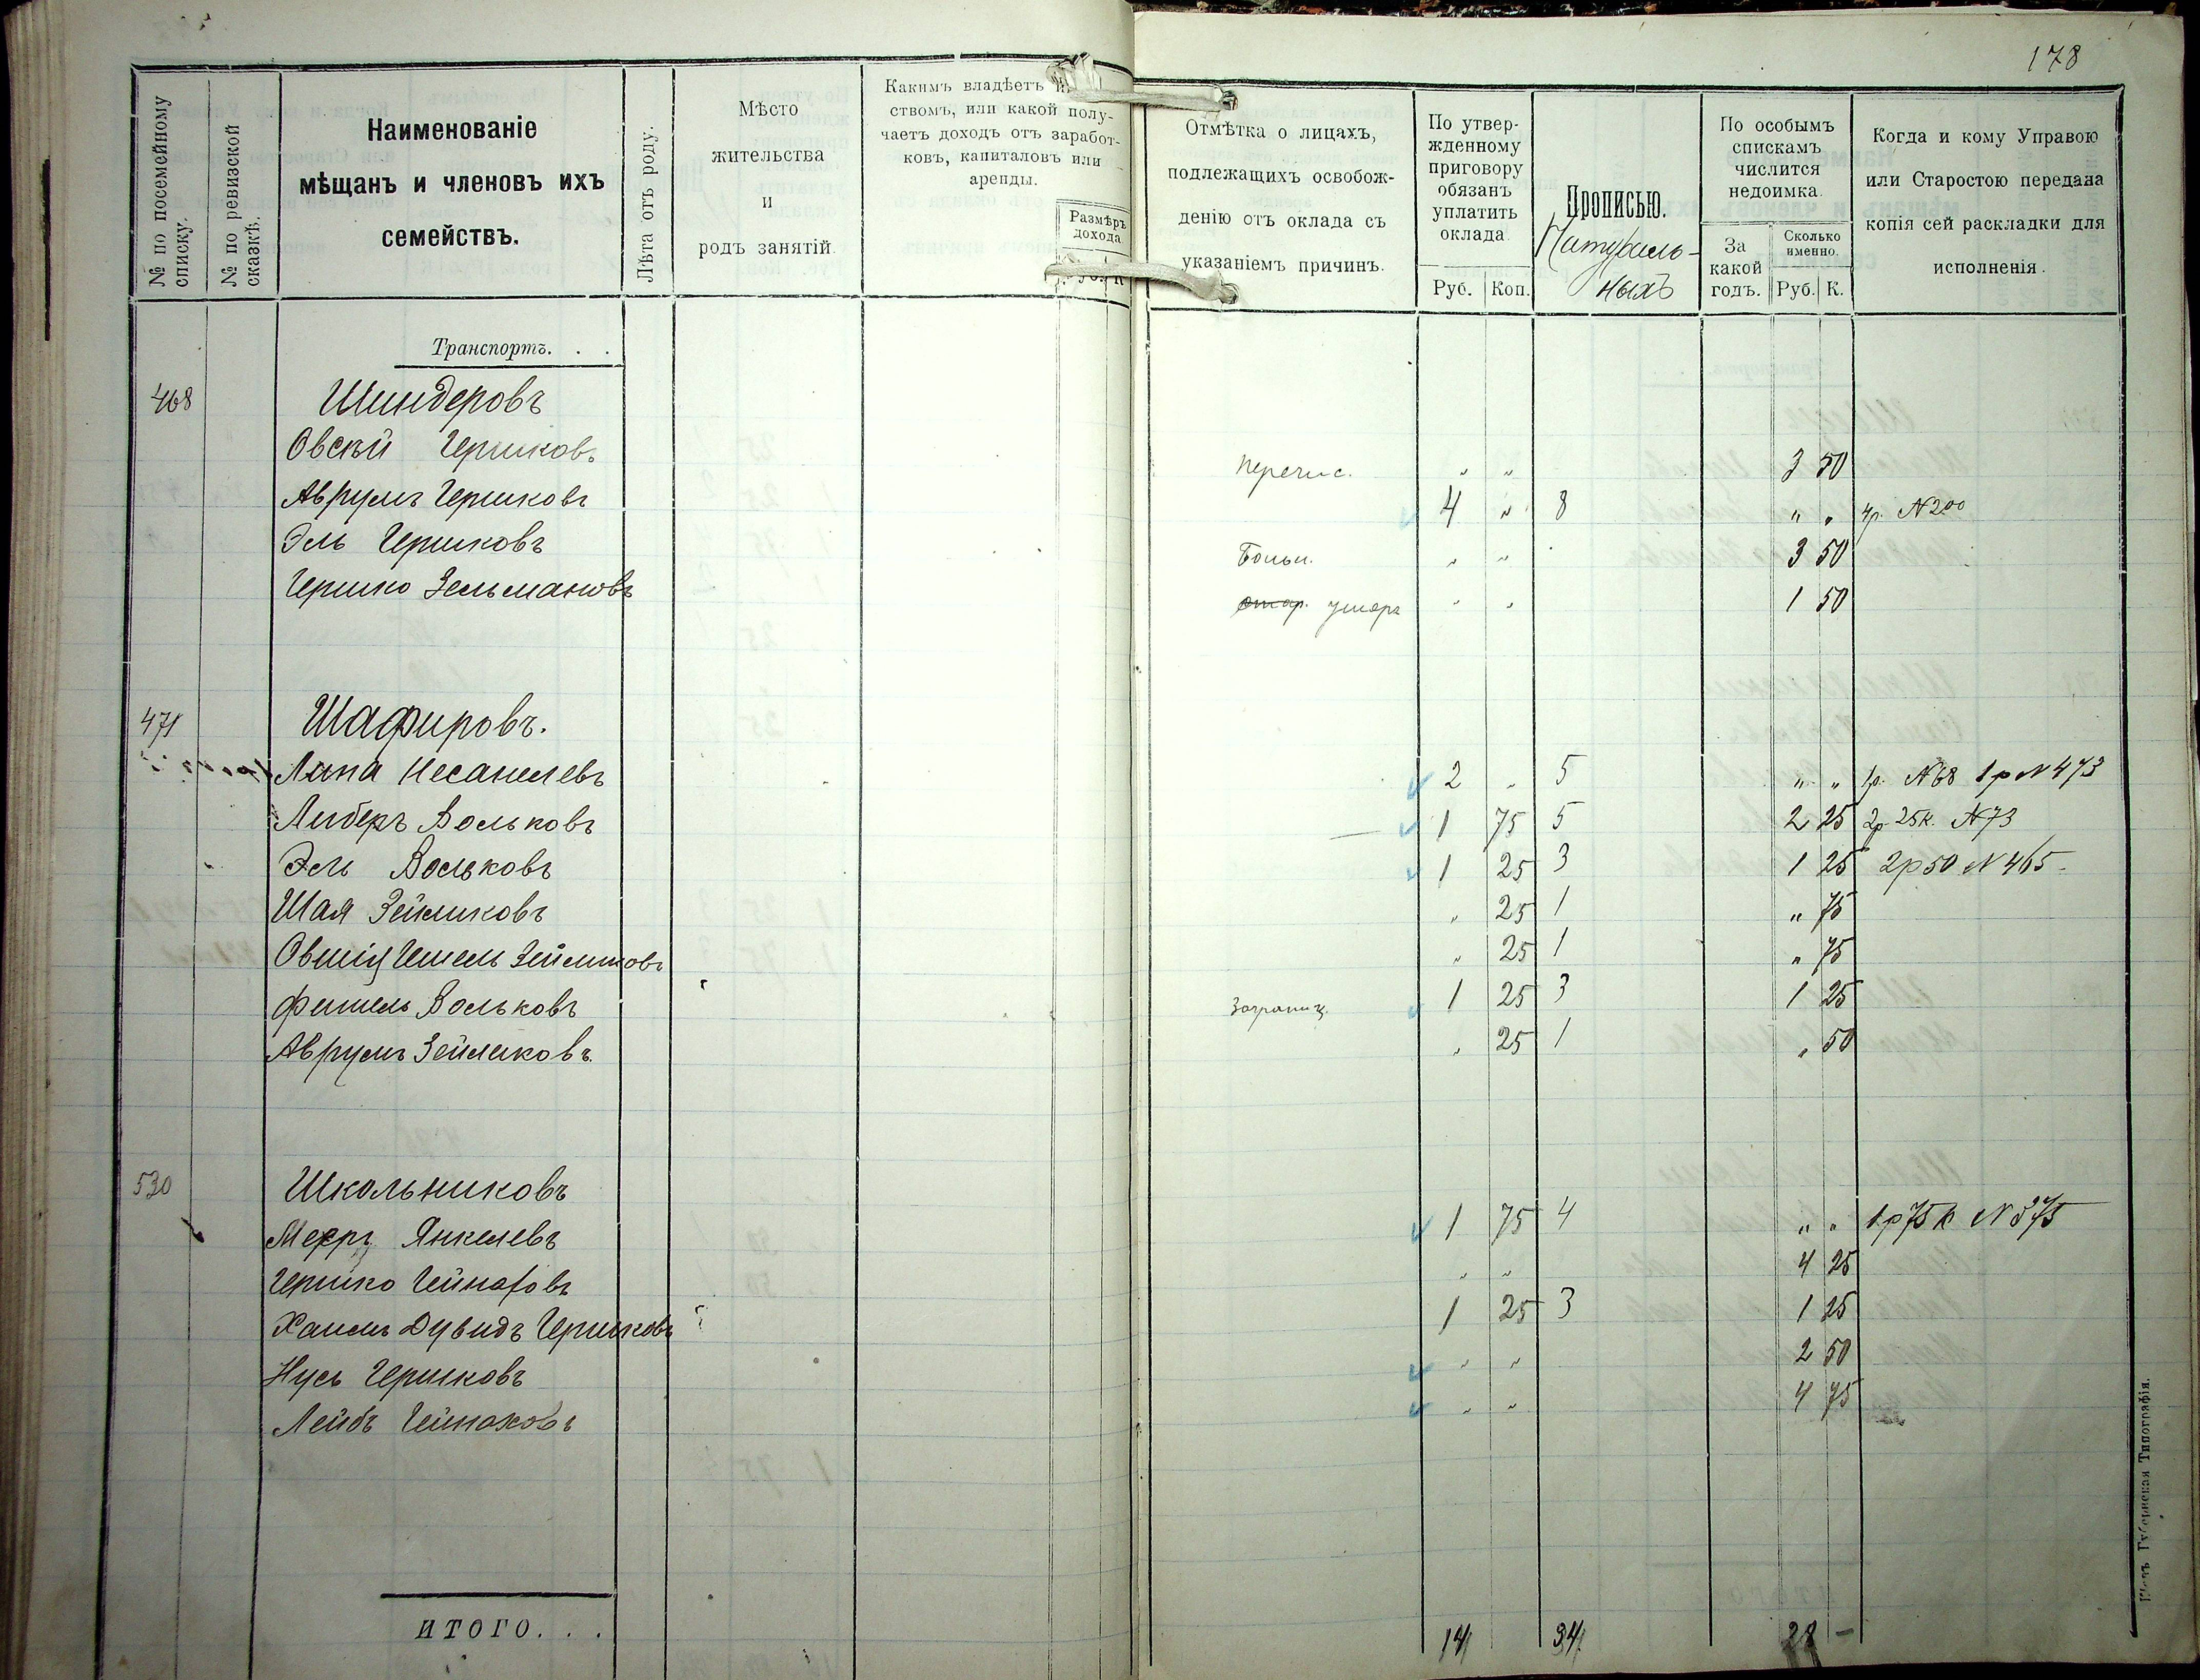 178
№ по посемейному списку.
№ по ревизской сказкѣ.
Наименованіе
мѣщанъ и членовъ ихъ
семействъ.
Лѣта отъ роду.
Мѣсто
жительства
и
родъ занятій.
Какимъ владѣетъ
ствомъ, или какой полу-
чаетъ доходъ отъ заработ-
ковъ, капиталовъ или
аренды.
Размѣръ
дохода
Отмѣтка о лицахъ,
подлежащихъ освобож-
денію отъ оклада съ
указаніемъ причинъ.
По утвер-
жденному
приговору
обязанъ
уплатить
оклада
Руб. Коп.
Прописью.
Натураль-
ныхъ
По особымъ
спискамъ
числится
недоимка.
За
какой
годъ.
Сколько
именно.
Руб. К.
Когда и кому Управою
или Старостою передана
копія сей раскладки для
исполненія.
Транспортъ. . .
468 Шиндеровъ
Овсѣй Гершковъ перечис. " " 3 50
Аврумъ Гершковъ 4 " 8 " " 4р. №200
Эль Гершковъ Больн. " " 3 50
Гершко Зельмановъ умеръ " " 1 50
471 Шафировъ.
Липа Несанелевъ 2 " 5 " " 1р. №68 1р №473
Либеръ Вольковъ 1 75 5 2 25 2р 25к. №73
Эль Вольковъ 1 25 3 1 25 2р 50 №465
Шая Зейликовъ " 25 1 " 75
Овшія Гешель Зейликовъ " 25 1 " 75
Фишель Вольковъ Заграниц. 1 25 3 1 25
Аврумъ Зейликовъ. " 25 1 " 50
530 Школьниковъ
Мееръ Янкелевъ 1 75 4 " " 1р 75к №575
Гершко Гейнаховъ " " 4 25
Хаимъ Дувидъ Гершковъ 1 25 3 1 25
Нусь Гершковъ " " 2 50
Лейбъ Гейнаховъ " " 4 75
ИТОГО. . . 14 34 28 —
Губернская Типографія.